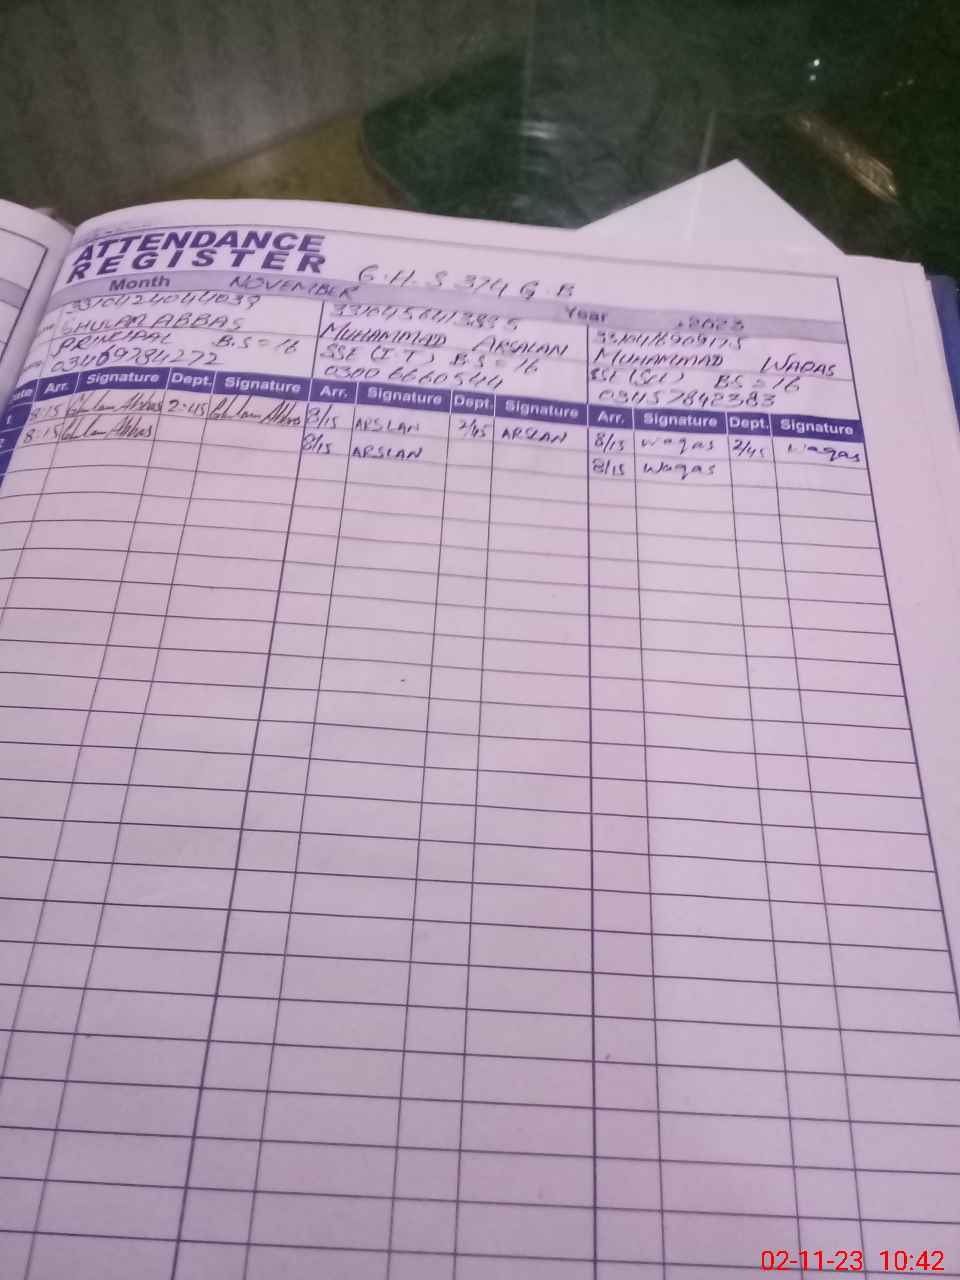 ATTENDANCE
REGISTER
G.H.S 374 G.B
Month NOVEMBER Year 2023
GHULAM ABBAS
PRINCIPAL B.S = 16
03409784272
MUHAMMAD ARSALAN
SSE (I.T) B.S = 16
03006660544
MUHAMMAD WAQAS
SSE (Sci) BS = 16
03457842383
Arr. Signature Dept. Signature Arr. Signature Dept. Signature Arr. Signature Dept. Signature
1 8:15 Ghulam Abbas 2:45 Ghulam Abbas 8/15 ARSLAN 2/45 ARSLAN 8/15 Waqas 2/45 Waqas
2 8:15 Ghulam Abbas 8/15 ARSLAN 8/15 Waqas
02-11-23 10:42